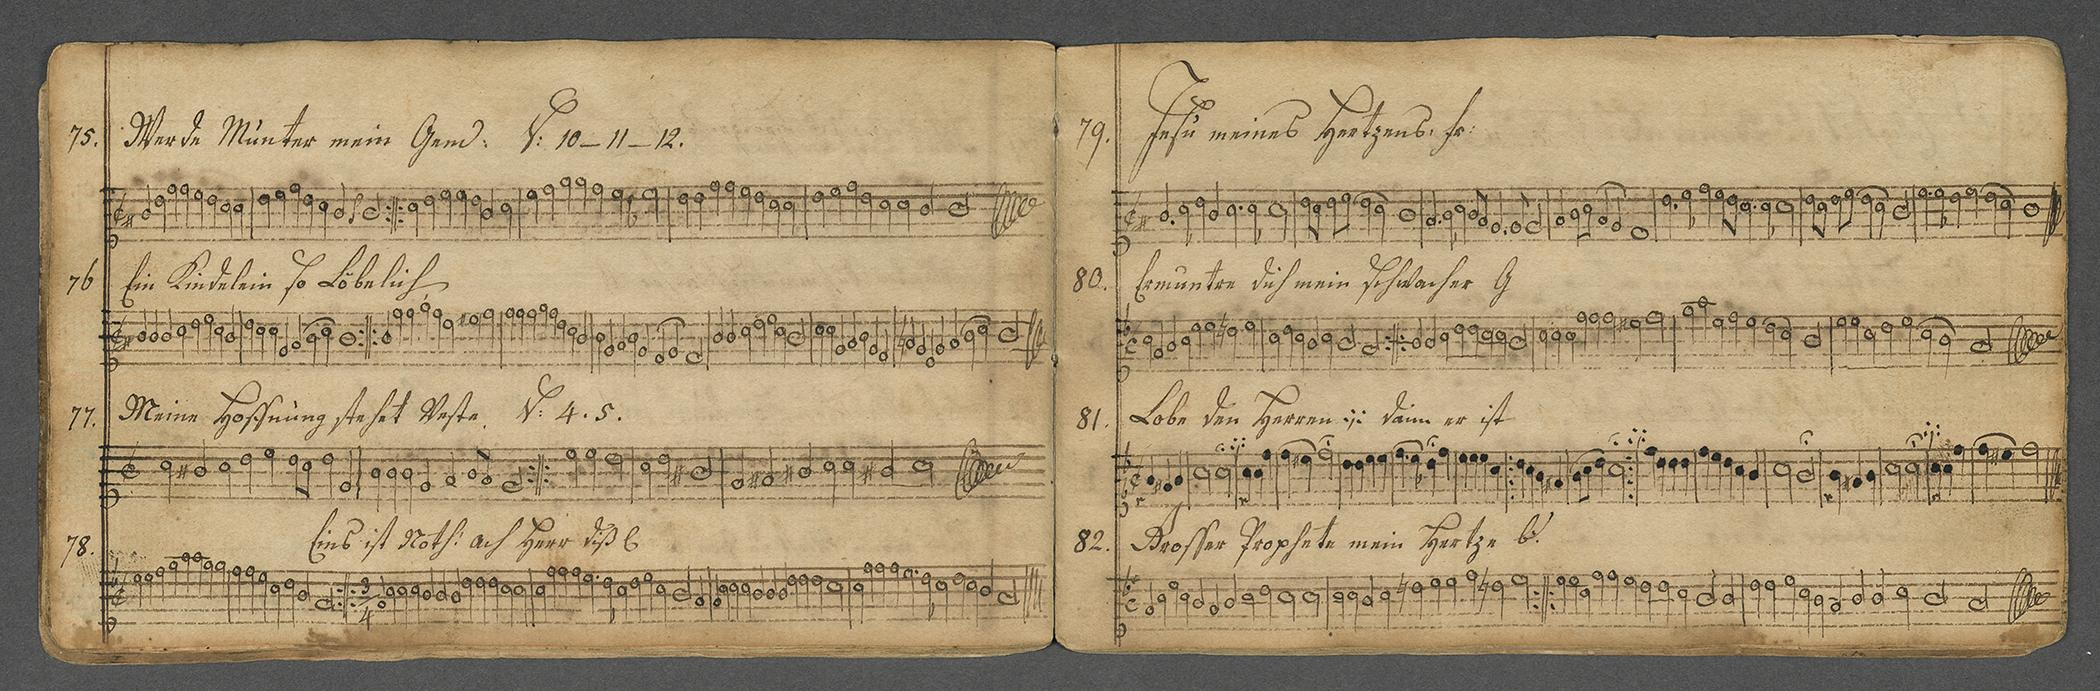 75. Werde Munter mein Gem: V: 10 – 11 – 12.
76 Ein Kindelein so Löbelich
77. Meine Hoffnung stehet Veste. V: 4. 5.
78. Eins ist Noth: ach Herr diß E
3/4
79. Jesu meines Hertzens. fr:
80. Ermuntre dich mein schwacher G
81. Lobe den Herren :/: dann er ist
82. Grosser Prophete mein Hertze b.